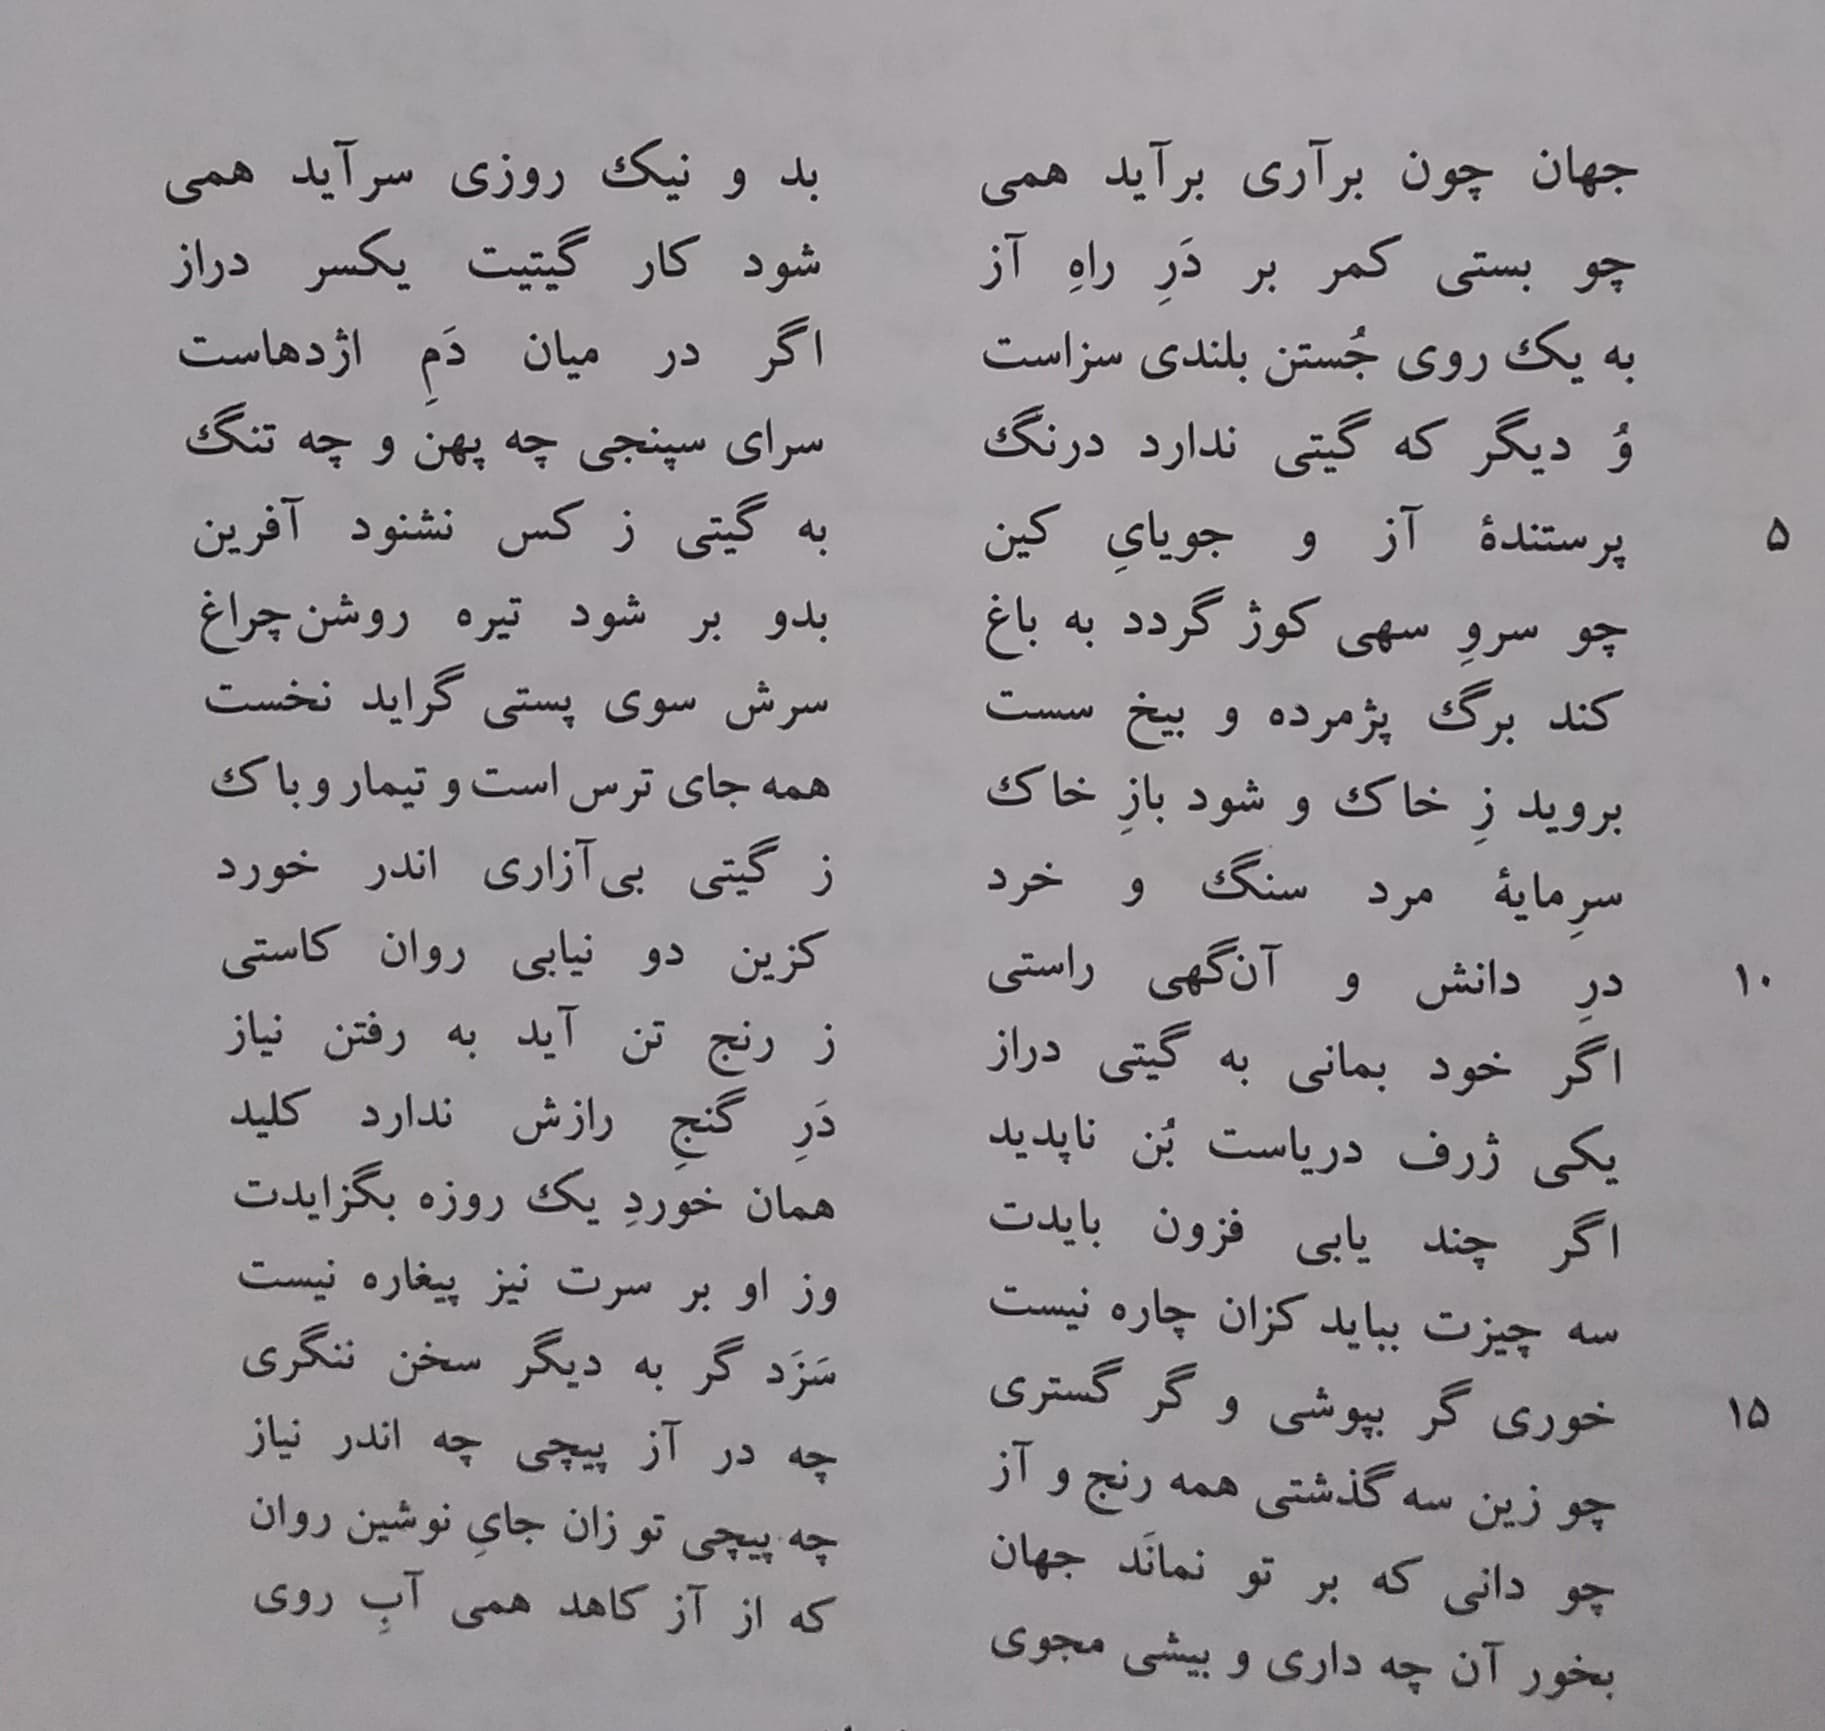 جهان چون برآری برآید همی بد و نیک روزی سرآید همی
چو بستی کمر بر دَرِ راهِ آز شود کار گیتیت یکسر دراز
به یک روی جُستن بلندی سزاست اگر در میان دَمِ اژدهاست
وُ دیگر که گیتی ندارد درنگ سرای سپنجی چه پهن و چه تنگ
۵ پرستندهٔ آز و جویایِ کین به گیتی ز کس نشنود آفرین
چو سروِ سهی کوژ گردد به باغ بدو بر شود تیره روشن‌چراغ
کند برگ پژمرده و بیخ سست سرش سوی پستی گراید نخست
بروید زِ خاک و شود بازِ خاک همه جای ترس است و تیمار و باک
سرِمایهٔ مرد سنگ و خرد ز گیتی بی‌آزاری اندر خورد
۱۰ درِ دانش و آن‌گهی راستی کزین دو نیابی روان کاستی
اگر خود بمانی به گیتی دراز ز رنج تن آید به رفتن نیاز
یکی ژرف دریاست بُن ناپدید دَرِ گنجِ رازش ندارد کلید
اگر چند یابی فزون بایدت همان خوردِ یک روزه بگزایدت
سه چیزت بباید کزان چاره نیست وز او بر سرت نیز پیغاره نیست
۱۵ خوری گر بپوشی و گر گستری سَزَد گر به دیگر سخن ننگری
چو زین سه گذشتی همه رنج و آز چه در آز پیچی چه اندر نیاز
چو دانی که بر تو نمانَد جهان چه پیچی تو زان جایِ نوشین روان
بخور آن چه داری و بیشی مجوی که از آز کاهد همی آبِ روی